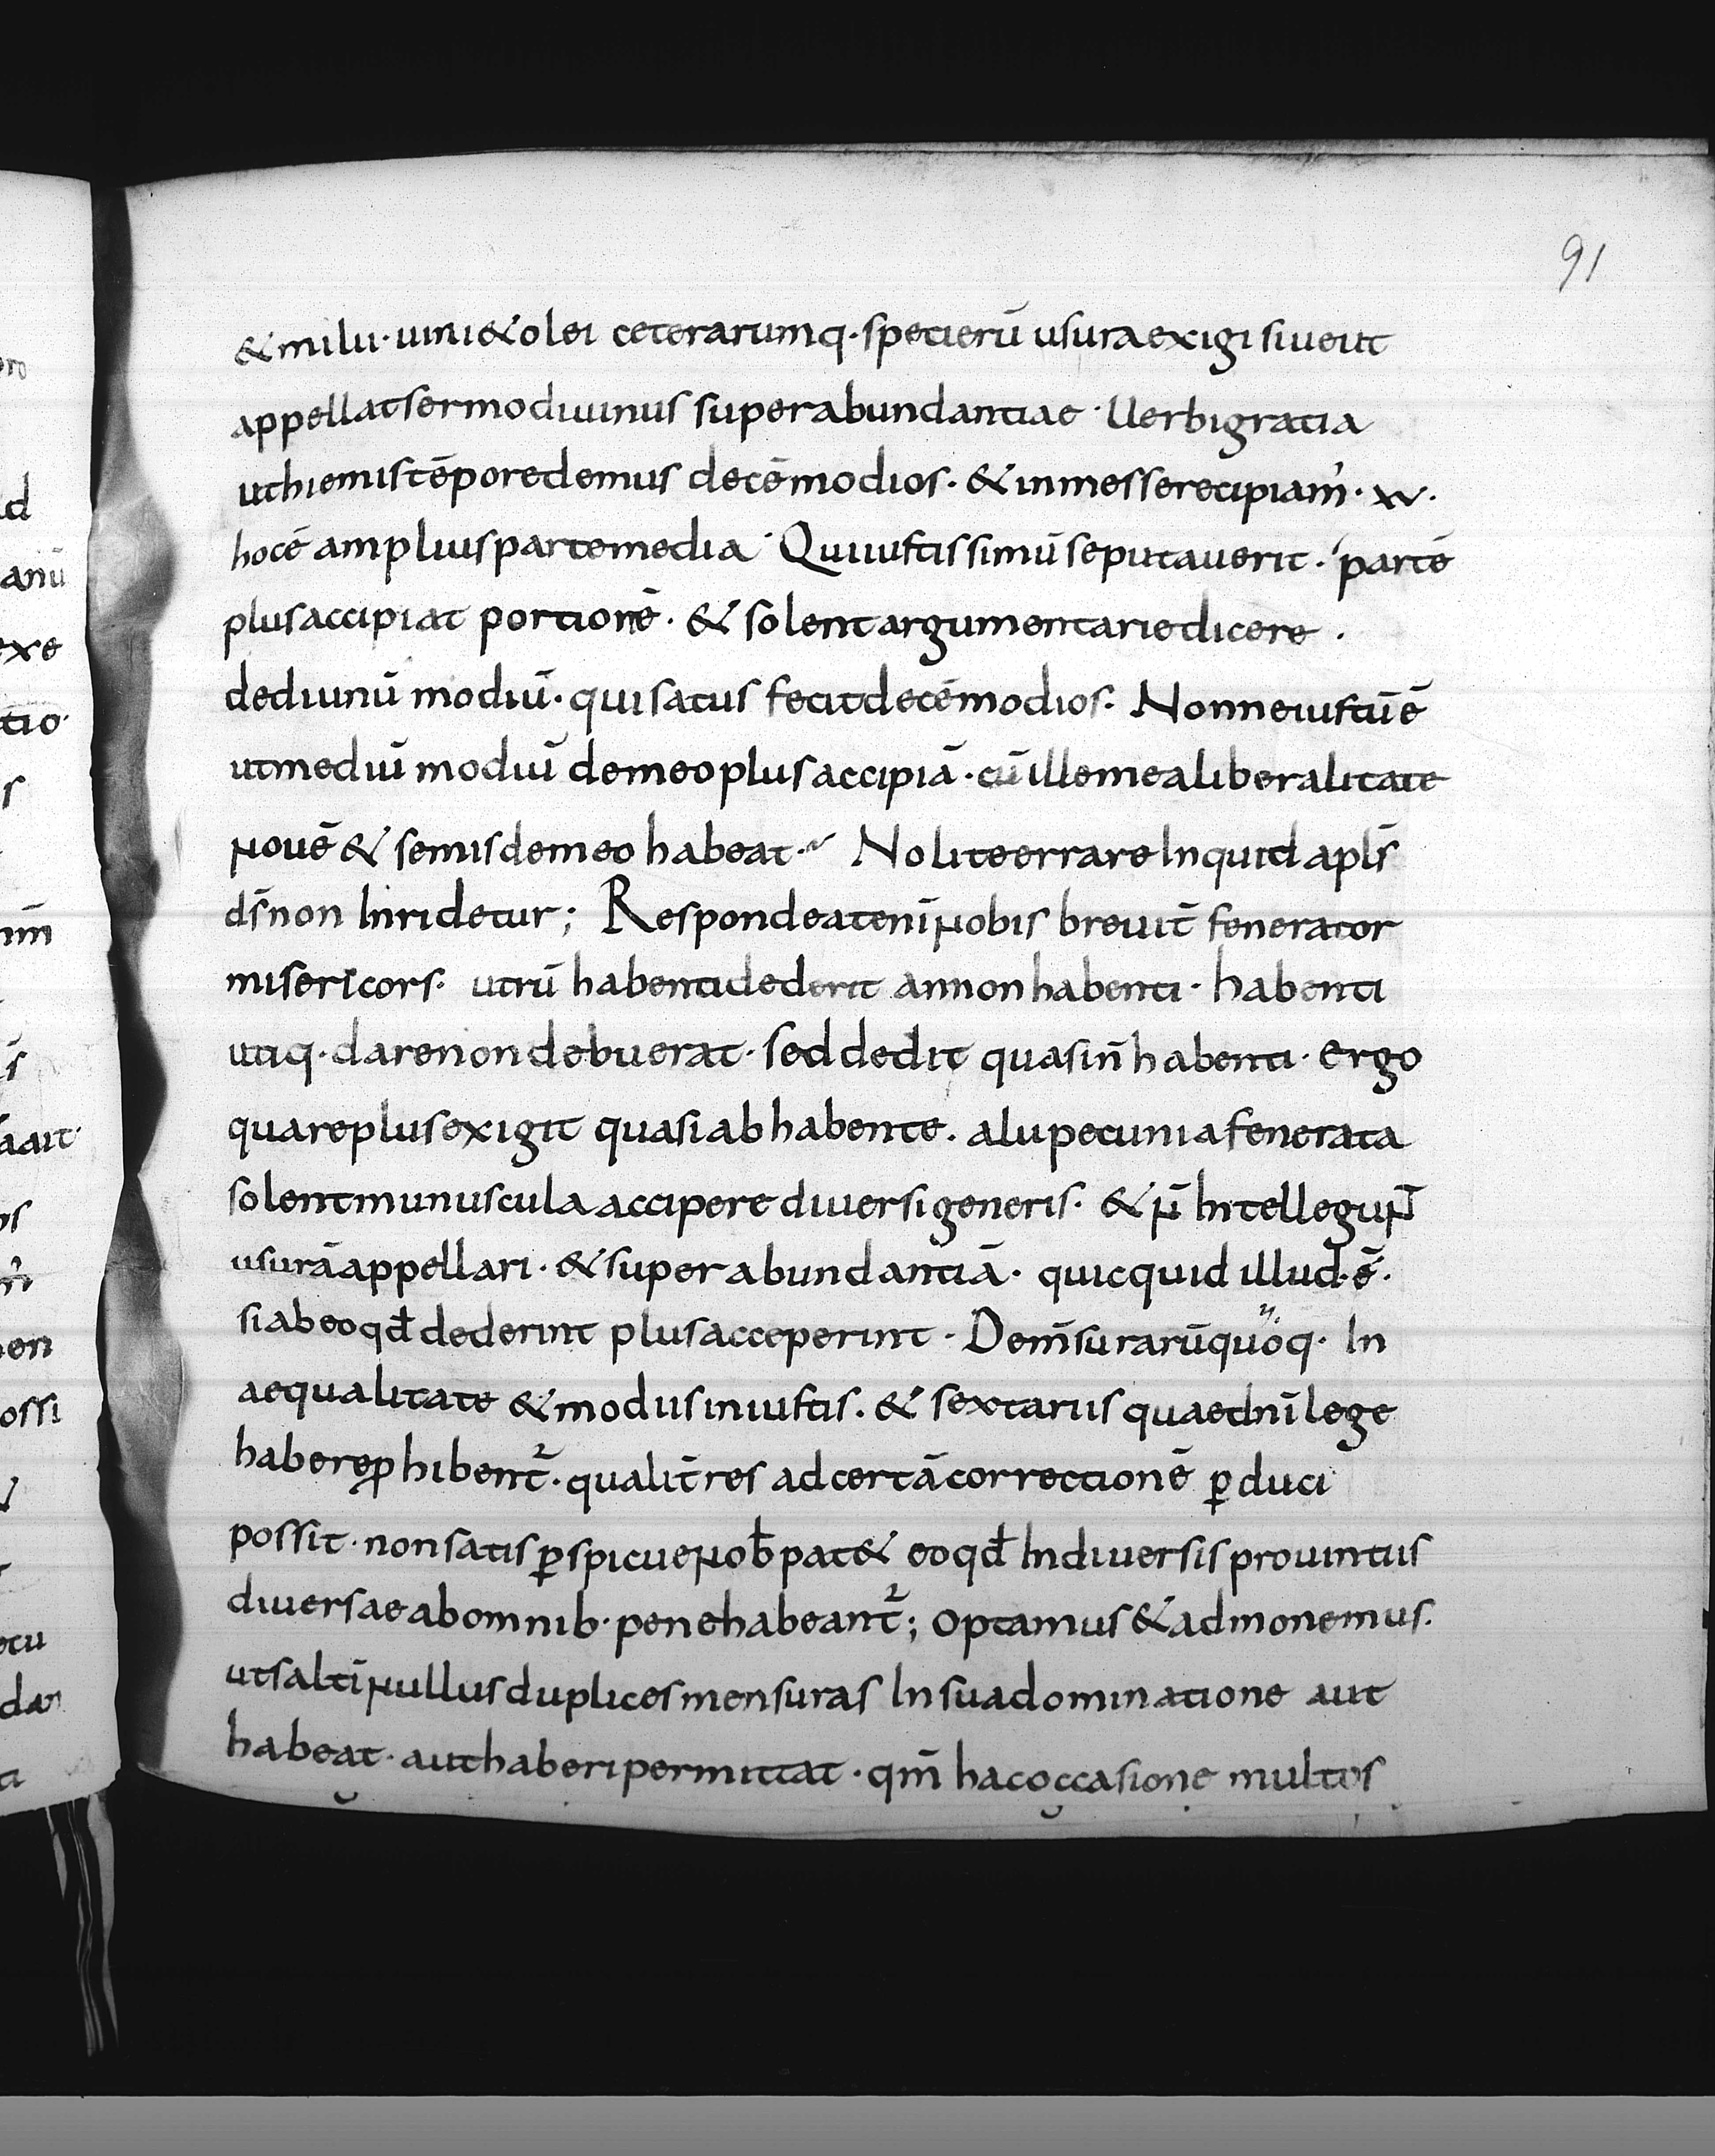 91
& milii · uini & olei ceterarumq · specierū usura exigi siue ut
appellat sermo diuinus superabundantiae · Uerbi gratia
ut hiemis tēpore demus decē modios · & in messe recipiam̄ · xv ·
hoc ē amplius parte media · Qui iustissimū se putauerit · partē
plus accipiat portionē · & solent argumentarie dicere ·
dedi unū modiū · qui satus fecit decē modios · Nonne iustū ē
ut mediū modiū de meo plus accipiā · cū ille mea liberalitate
nouē & semis de meo habeat · Nolite errare Inquid apls̄
ds̄ non Inridetur ; Respondeat enī nobis breuit̄ fenerator
misericors · utrū habenti dederit an non habenti · habenti
utiq · dare non debuerat · sed dedit quasi n̄ habenti · ergo
quare plus exigit quasi ab habente · alii pecunia fenerata
solent munuscula accipere diuersi generis · & n̄ Intellegun̄
usurā appellari · & superabundantiā · quicquid illud · ē ·
si ab eo qd̄ dederint plus acceperint · De m̄surarū quoq · In
aequalitate & modiis iniustis · & sextariis quae dn̄i lege
habere ꝓhibent̄ · qualit̄ res ad certā correctionē ꝑduci
possit · non satis ꝑspicue nob̄ pat& eo qd̄ In diuersis prouintiis
diuersae ab omnib · pene habeant̄ ; optamus & admonemus ·
ut saltī nullus duplices mensuras In sua dominatione aut
habeat · aut haberi permittat · qm̄ hac occasione multos